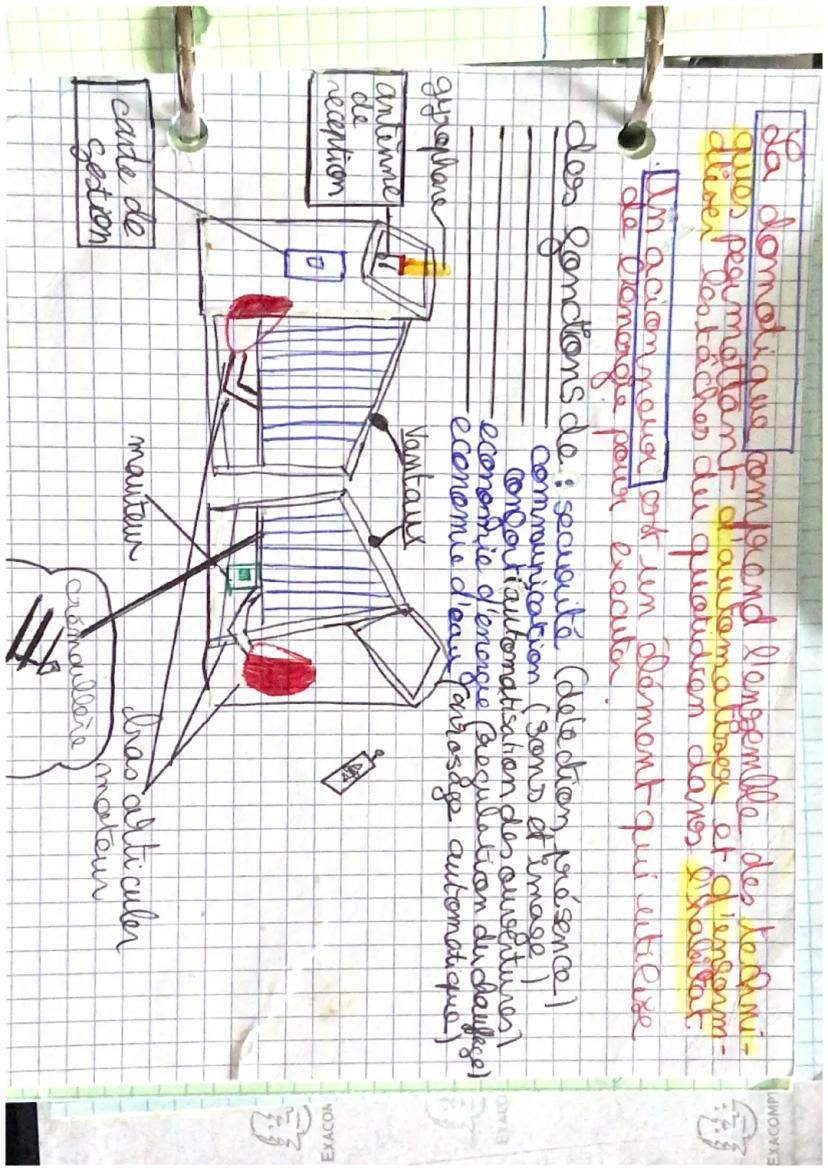 La domotique comprend l'ensemble des techni-
ques permettant d'automatiser et d'enform-
atiser les tâches du quotidien dans l'habitat.
Un acionneur est un élément qui utilise
de l'énergie pour executer.
des fonctions de : securité (détection présence)
communication (sons et image)
confort (automatisation des ouvertures)
economie d'énergie (regulation du chauffage)
economie d'eau (arrosage automatique)
gyrophare
antènne
de
reception
Vantaux
carte de
gestion
mauteur
crémaillère
bras articuler
moteur
EXACOM
EXACO
EXACOMPT